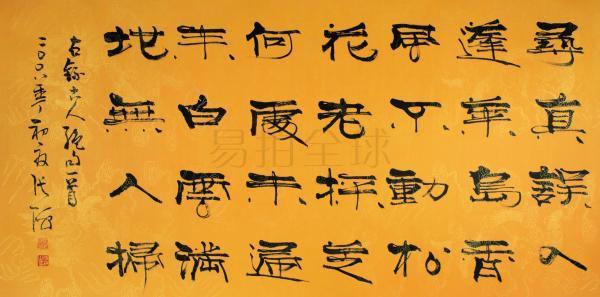 尋真誤入
蓬萊島香
風不動松
花老採芝
何處未歸
来白雲滿
地無人掃
右錄古人絕句一首
二〇〇八年初夏張
易拍全球